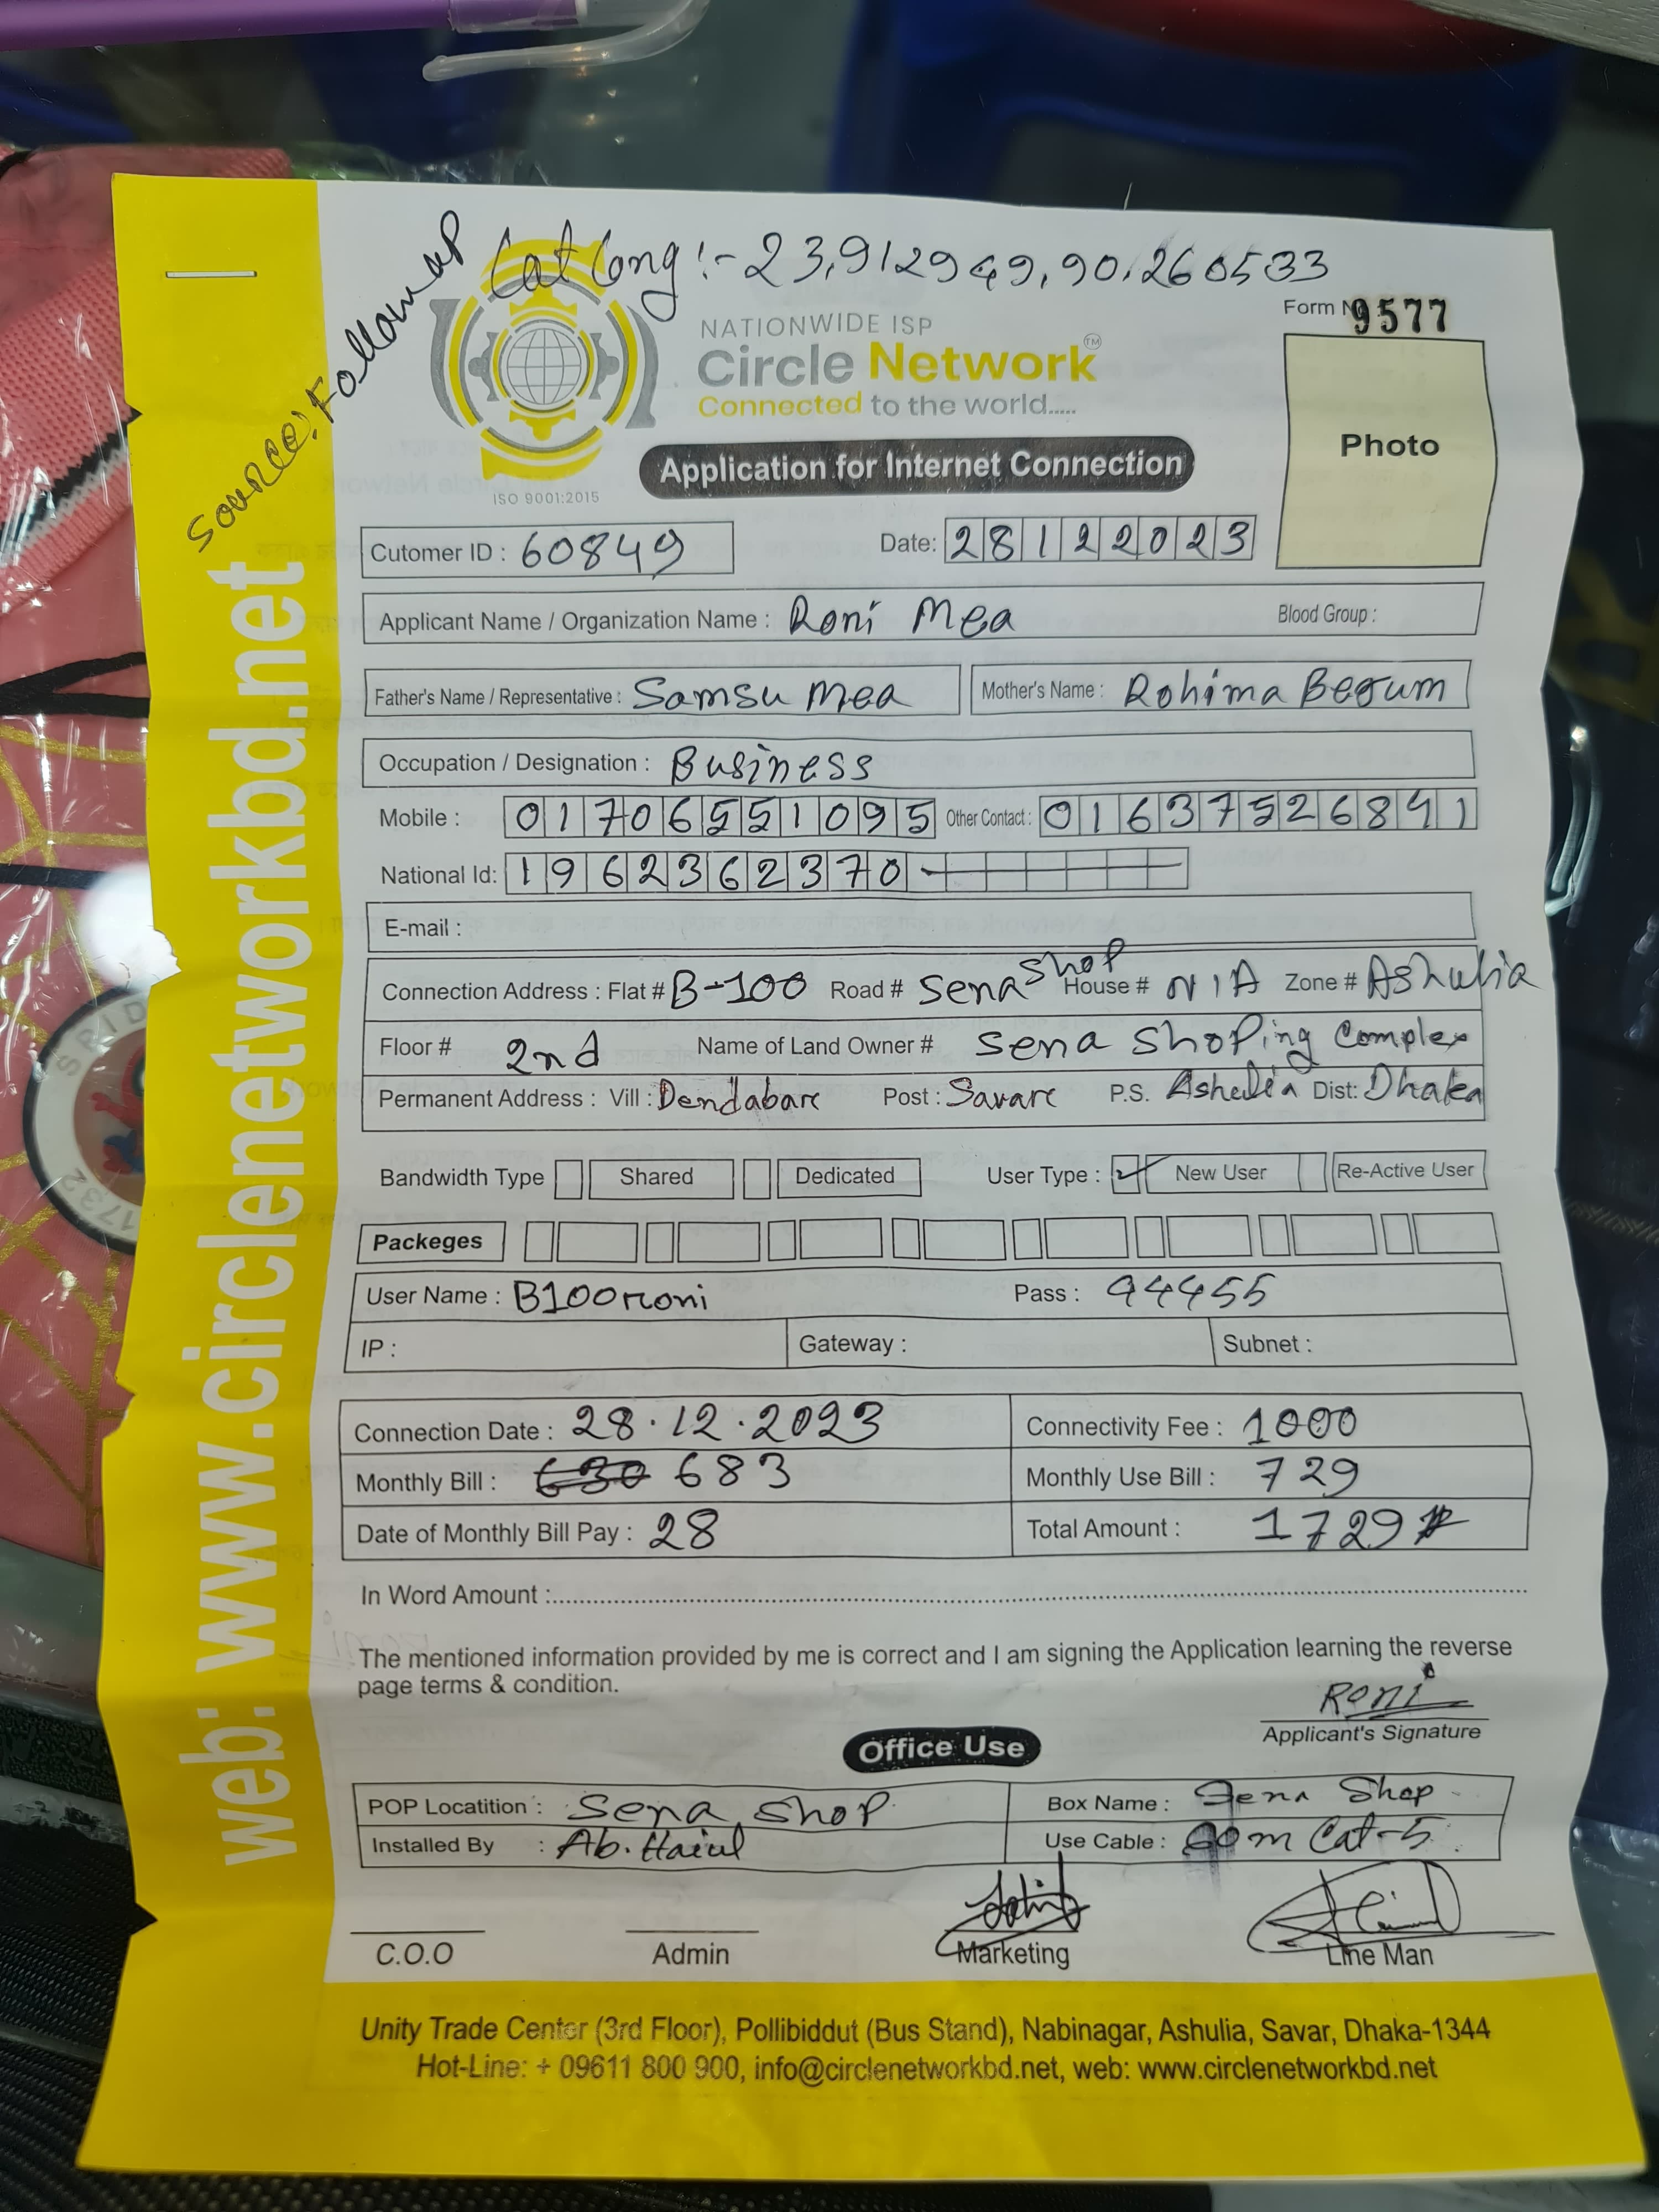 Source: Followup
Lat Long :- 23.912949, 90.260533
Form N 9577
NATIONWIDE ISP
Circle Network TM
Connected to the world.....
ISO 9001:2015
Application for Internet Connection
Photo
Cutomer ID : 60849 Date: 28122023
Applicant Name / Organization Name : Roni Mea Blood Group :
Father's Name / Representative : Samsu Mea Mother's Name : Rohima Begum
Occupation / Designation : Business
Mobile : 01706551095 Other Contact : 01637526841
National Id: 1962362370
E-mail :
Connection Address : Flat # B-100 Road # Sena Shop House # N/A Zone # Ashulia
Floor # 2nd Name of Land Owner # Sena Shoping Complex
Permanent Address : Vill : Dendabare Post : Savare P.S. Ashulia Dist: Dhaka
Bandwidth Type Shared Dedicated User Type : ✓ New User Re-Active User
Packeges
User Name : B100roni Pass : 44455
IP : Gateway : Subnet :
Connection Date : 28.12.2023 Connectivity Fee : 1000
Monthly Bill : 630 683 Monthly Use Bill : 729
Date of Monthly Bill Pay : 28 Total Amount : 1729
In Word Amount :
The mentioned information provided by me is correct and I am signing the Application learning the reverse
page terms & condition.
Roni
Applicant's Signature
Office Use
POP Locatition : Sena Shop Box Name : Sena Shop
Installed By : Ab. Haiul Use Cable : m Cat-5
C.O.O Admin Marketing Line Man
Unity Trade Center (3rd Floor), Pollibiddut (Bus Stand), Nabinagar, Ashulia, Savar, Dhaka-1344
Hot-Line: + 09611 800 900, info@circlenetworkbd.net, web: www.circlenetworkbd.net
web: www.circlenetworkbd.net